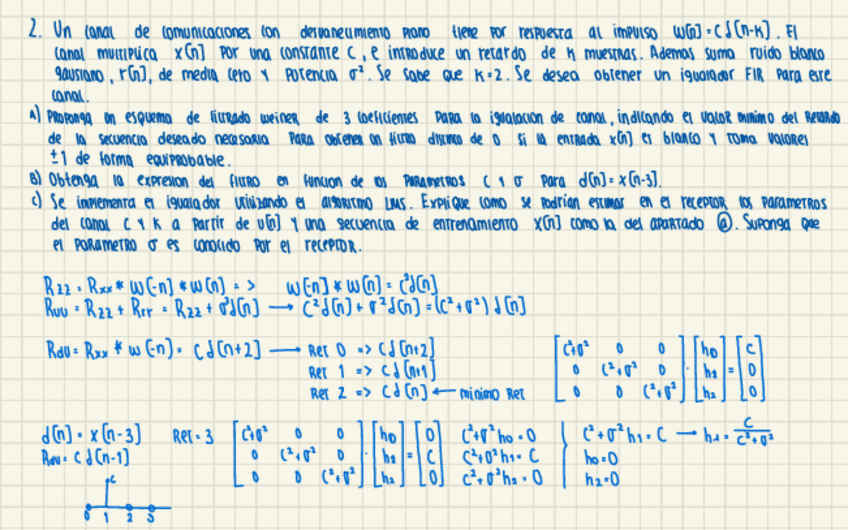 2. Un canal de comunicaciones con desvanecimiento plano tiene por respuesta al impulso w[n] = c δ[n-k]. El
canal multiplica x[n] por una constante c, e introduce un retardo de k muestras. Ademas suma ruido blanco
gausiano, r[n], de media cero y potencia σ². Se sabe que k=2. Se desea obtener un igualador FIR para este
canal.
A) Proponga un esquema de filtrado weiner de 3 coeficientes para la igualacion de canal, indicando el valor minimo del retardo
de la secuencia deseado necesaria para obtener un filtro distinto de 0 si la entrada x[n] es blanco y toma valores
±1 de forma equiprobable.
B) Obtenga la expresion del filtro en funcion de los parametros c y σ para d[n] = x[n-3].
c) Se implementa el igualador utilizando el algoritmo LMS. Explique como se podrian estimar en el receptor los parametros
del canal c y k a partir de u[n] y una secuencia de entrenamiento x[n] como la del apartado ⓐ. Suponga que
el parametro σ es conocido por el receptor.
Rzz = Rxx * w[-n] * w[n] => w[-n] * w[n] = c²δ[n]
Ruu = Rzz + Rrr = Rzz + σ²δ[n] → c²δ[n] + σ²δ[n] = (c²+σ²) δ[n]
Rdu = Rxx * w[-n] = cδ[n+2] → Ret 0 => cδ[n+2]
Ret 1 => cδ[n+1]
Ret 2 => cδ[n] ← minimo Ret
[c²+σ² 0 0
0 (c²+σ² 0
0 0 (c²+σ²] · [h0 h1 h2] = [c 0 0]
d[n] = x[n-3] Ret = 3
Rdu = c δ[n-1]
[c²+σ² 0 0
0 (c²+σ² 0
0 0 (c²+σ²] · [h0 h1 h2] = [0 c 0]
c²+σ² h0 = 0
c²+σ² h1 = c
c²+σ² h2 = 0
c²+σ² h1 = c → h1 = c/(c²+σ²)
h0 = 0
h2 = 0
c
0 1 2 3